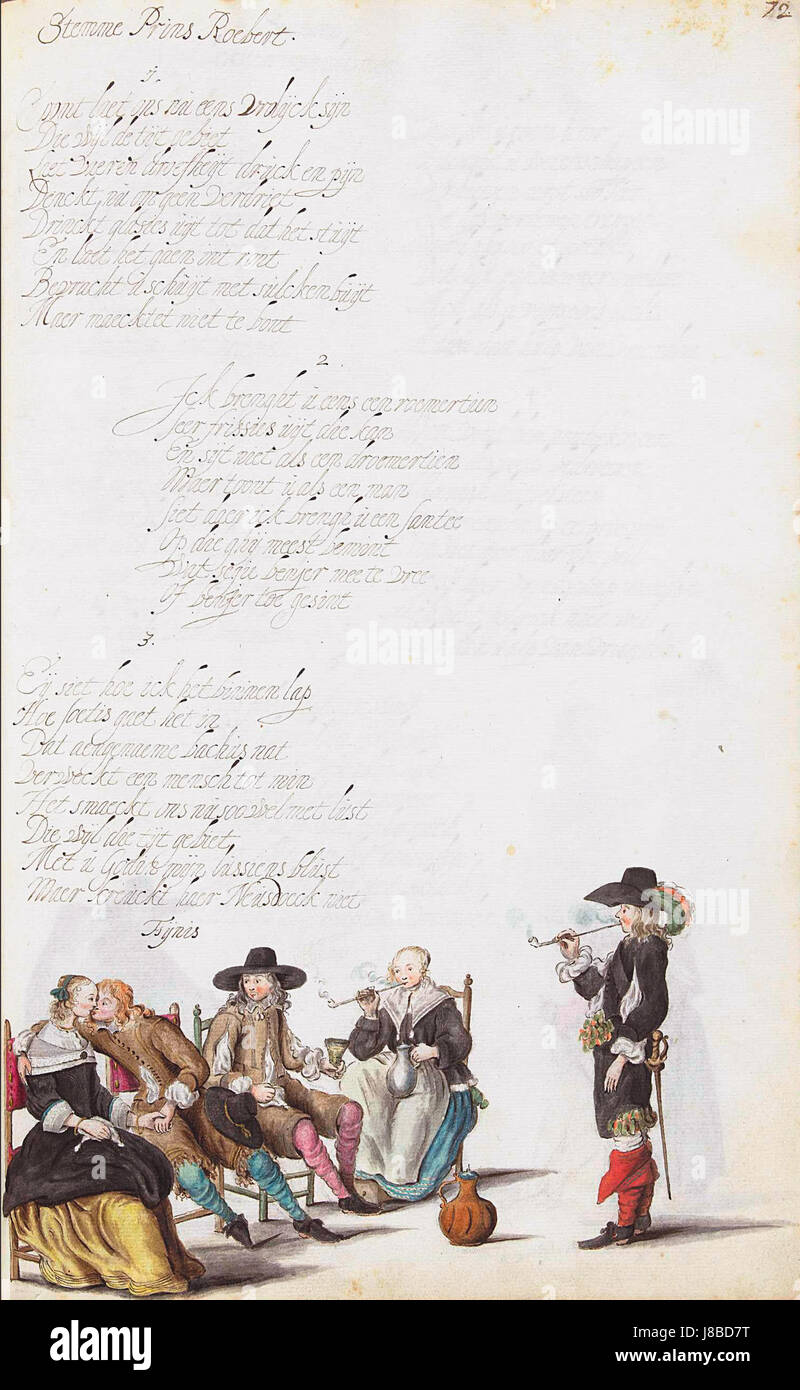 72.
Stemme Prins Roebert.
1.
Comt laet ons nu eens Vrolijck sijn
Die wijl de tijt gebiet
Laet Vaeren droefheijt druck en pijn
Denckt nu op geen Verdriet
Drinckt glasies uijt tot dat het stuijt
En laet het gaen int ront
Bevracht u schuijt met sulcken buijt
Maer maecktet niet te bont
2.
Ick brenght u eens een roemertien
seer frissies uijt die kan
En sijt niet als een droemertien
Maer toont u als een man
siet daer ick brengh u een santee
Op die ghij meest bemint
Wat segie benjer mee te Vree
Of benjer toe gesint
3.
Eij siet hoe ick het binnen lap
Hoe soetis gaet het in
Dat aengenaeme bachus nat
Verweckt een mensch tot min
Het smaeckt ons nu soo Wel met lust
Die wijl die tijt gebiet
Met u mijn lussiens blust
Maer kreuckt haer Neusdoeck niet
Fijnis
alamy
Image ID: J8BD7T
www.alamy.com